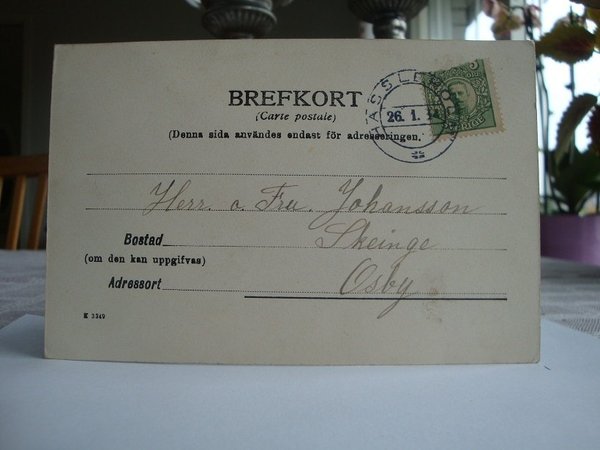 BREFKORT
(Carte postale)
(Denna sida användes endast för adresseringen.)
26. 1.
Herr. o. Fru. Johansson
Bostad Skeinge
(om den kan uppgifvas)
Adressort Osby
K 3349